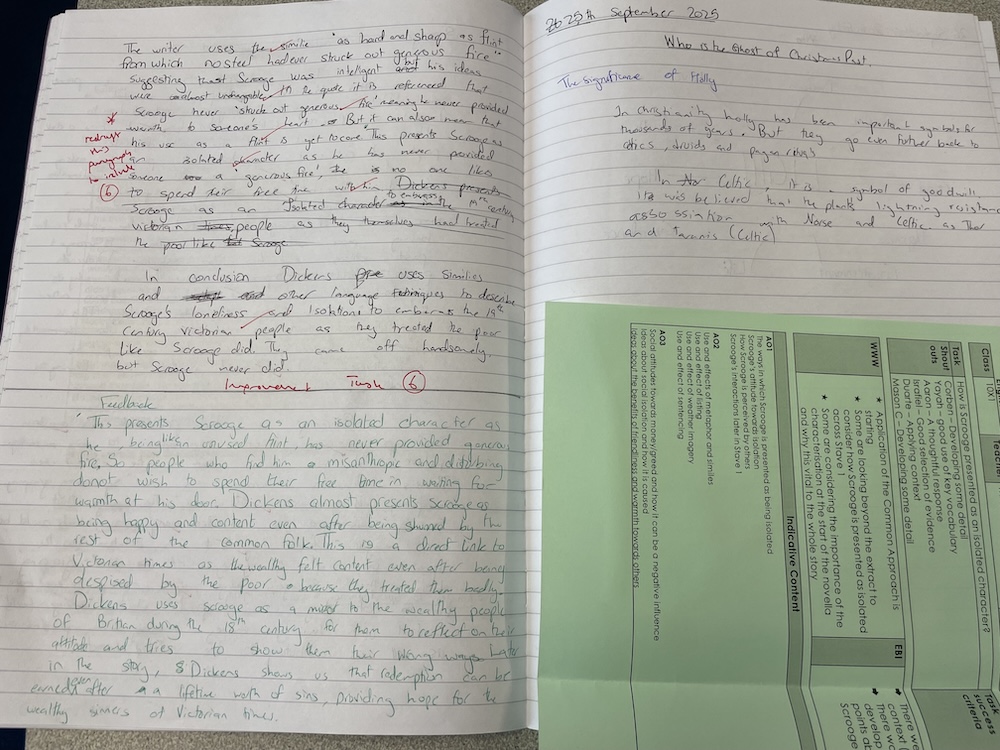 The writer uses the simile "as hard and sharp as flint
from which no steel had ever struck out generous fire"
suggesting that Scrooge was intelligent but his ideas
were almost unchangable. In the quote it is referenced that
Scrooge never 'struck out generous fire' meaning he never provided
warmth to someone's heart. But it can also mean that
his use as a flint is yet to come. This presents Scrooge as
an isolated character as he has never provided
someone a 'generous fire', there is no one likes
to spend their free time with him. Dickens presents
Scrooge as an Isolated character to embarass the 19th century
victorian people as they themselves had treated
the poor like Scrooge
* redraft
this
paragraph
to include
6
In conclusion Dickens uses similies
and other language techniques to describe
Scrooge's loneliness and Isolation to embaras the 19th
Century Victorian people as they treated the poor
like Scrooge did. They came off handsomely,
but Scrooge never did.
Improvement Task 6
Feedback
'This presents Scrooge as an isolated character as
he being like an unused flint has never provided generous
fire. So people who find him a misanthropic and disturbing
do not wish to spend their free time in waiting for
warmth at his door. Dickens almost presents scrooge as
being happy and content even after being shunned by the
rest of the common folk. This is a direct link to
Victorian times as the wealthy felt content even after being
despised by the poor because they treated them badly.
Dickens uses scrooge as a mirror to the wealthy people
of Britian during the 18th century for them to reflect on their
attitude and tries to show them their wrong ways. Later
in the story, Dickens shows us that redemption can be
earned even after a lifetime worth of sins, providing hope for the
wealthy sinners of Victorian times.
25th September 2025
Who is the Ghost of Christmas Past.
The significance of Holly
In christianity holly has been important symbols for
thousands of years. But they go even futher back to
celtics, druids and pagan
In Celtic, it is a symbol of goodwill
it was believed that the plants lightning resistance
assossiation with Norse and Celtic as Thor
and Taranis (Celtic)
Class
10X1
Teacher
Task
How is Scrooge presented as an isolated character?
Shout
outs
Corben – Developing some detail
Yayah – good use of key vocabulary
Aaron – A thoughtful response
Israfiel – Good selection of evidence
Duarte – Applying context
Mason C – Developing some detail
WWW
★ Application of the Common Approach is
starting
★ Some are looking beyond the extract to
consider how Scrooge is presented as isolated
across Stave 1
★ Some are considering the importance of the
characterisation at the start of the novella
and why this vital to the whole story
EBI
There w
context
there wo
develop
points ab
Scrooge
Task
success
criteria
Indicative Content
AO1
The ways in which Scrooge is presented as being isolated
Scrooge's attitude towards isolation
How Scrooge is perceived by others
Scrooge's interactions later in Stave 1
AO2
Use and effects of metaphor and similes
Use and effect of listing
Use and effect of weather imagery
Use and effect of sentencing
AO3
Social attitudes towards money/greed and how it can be a negative influence
Ideas about social isolation and how it is caused
Ideas about the benefits of friendliness and warmth towards others